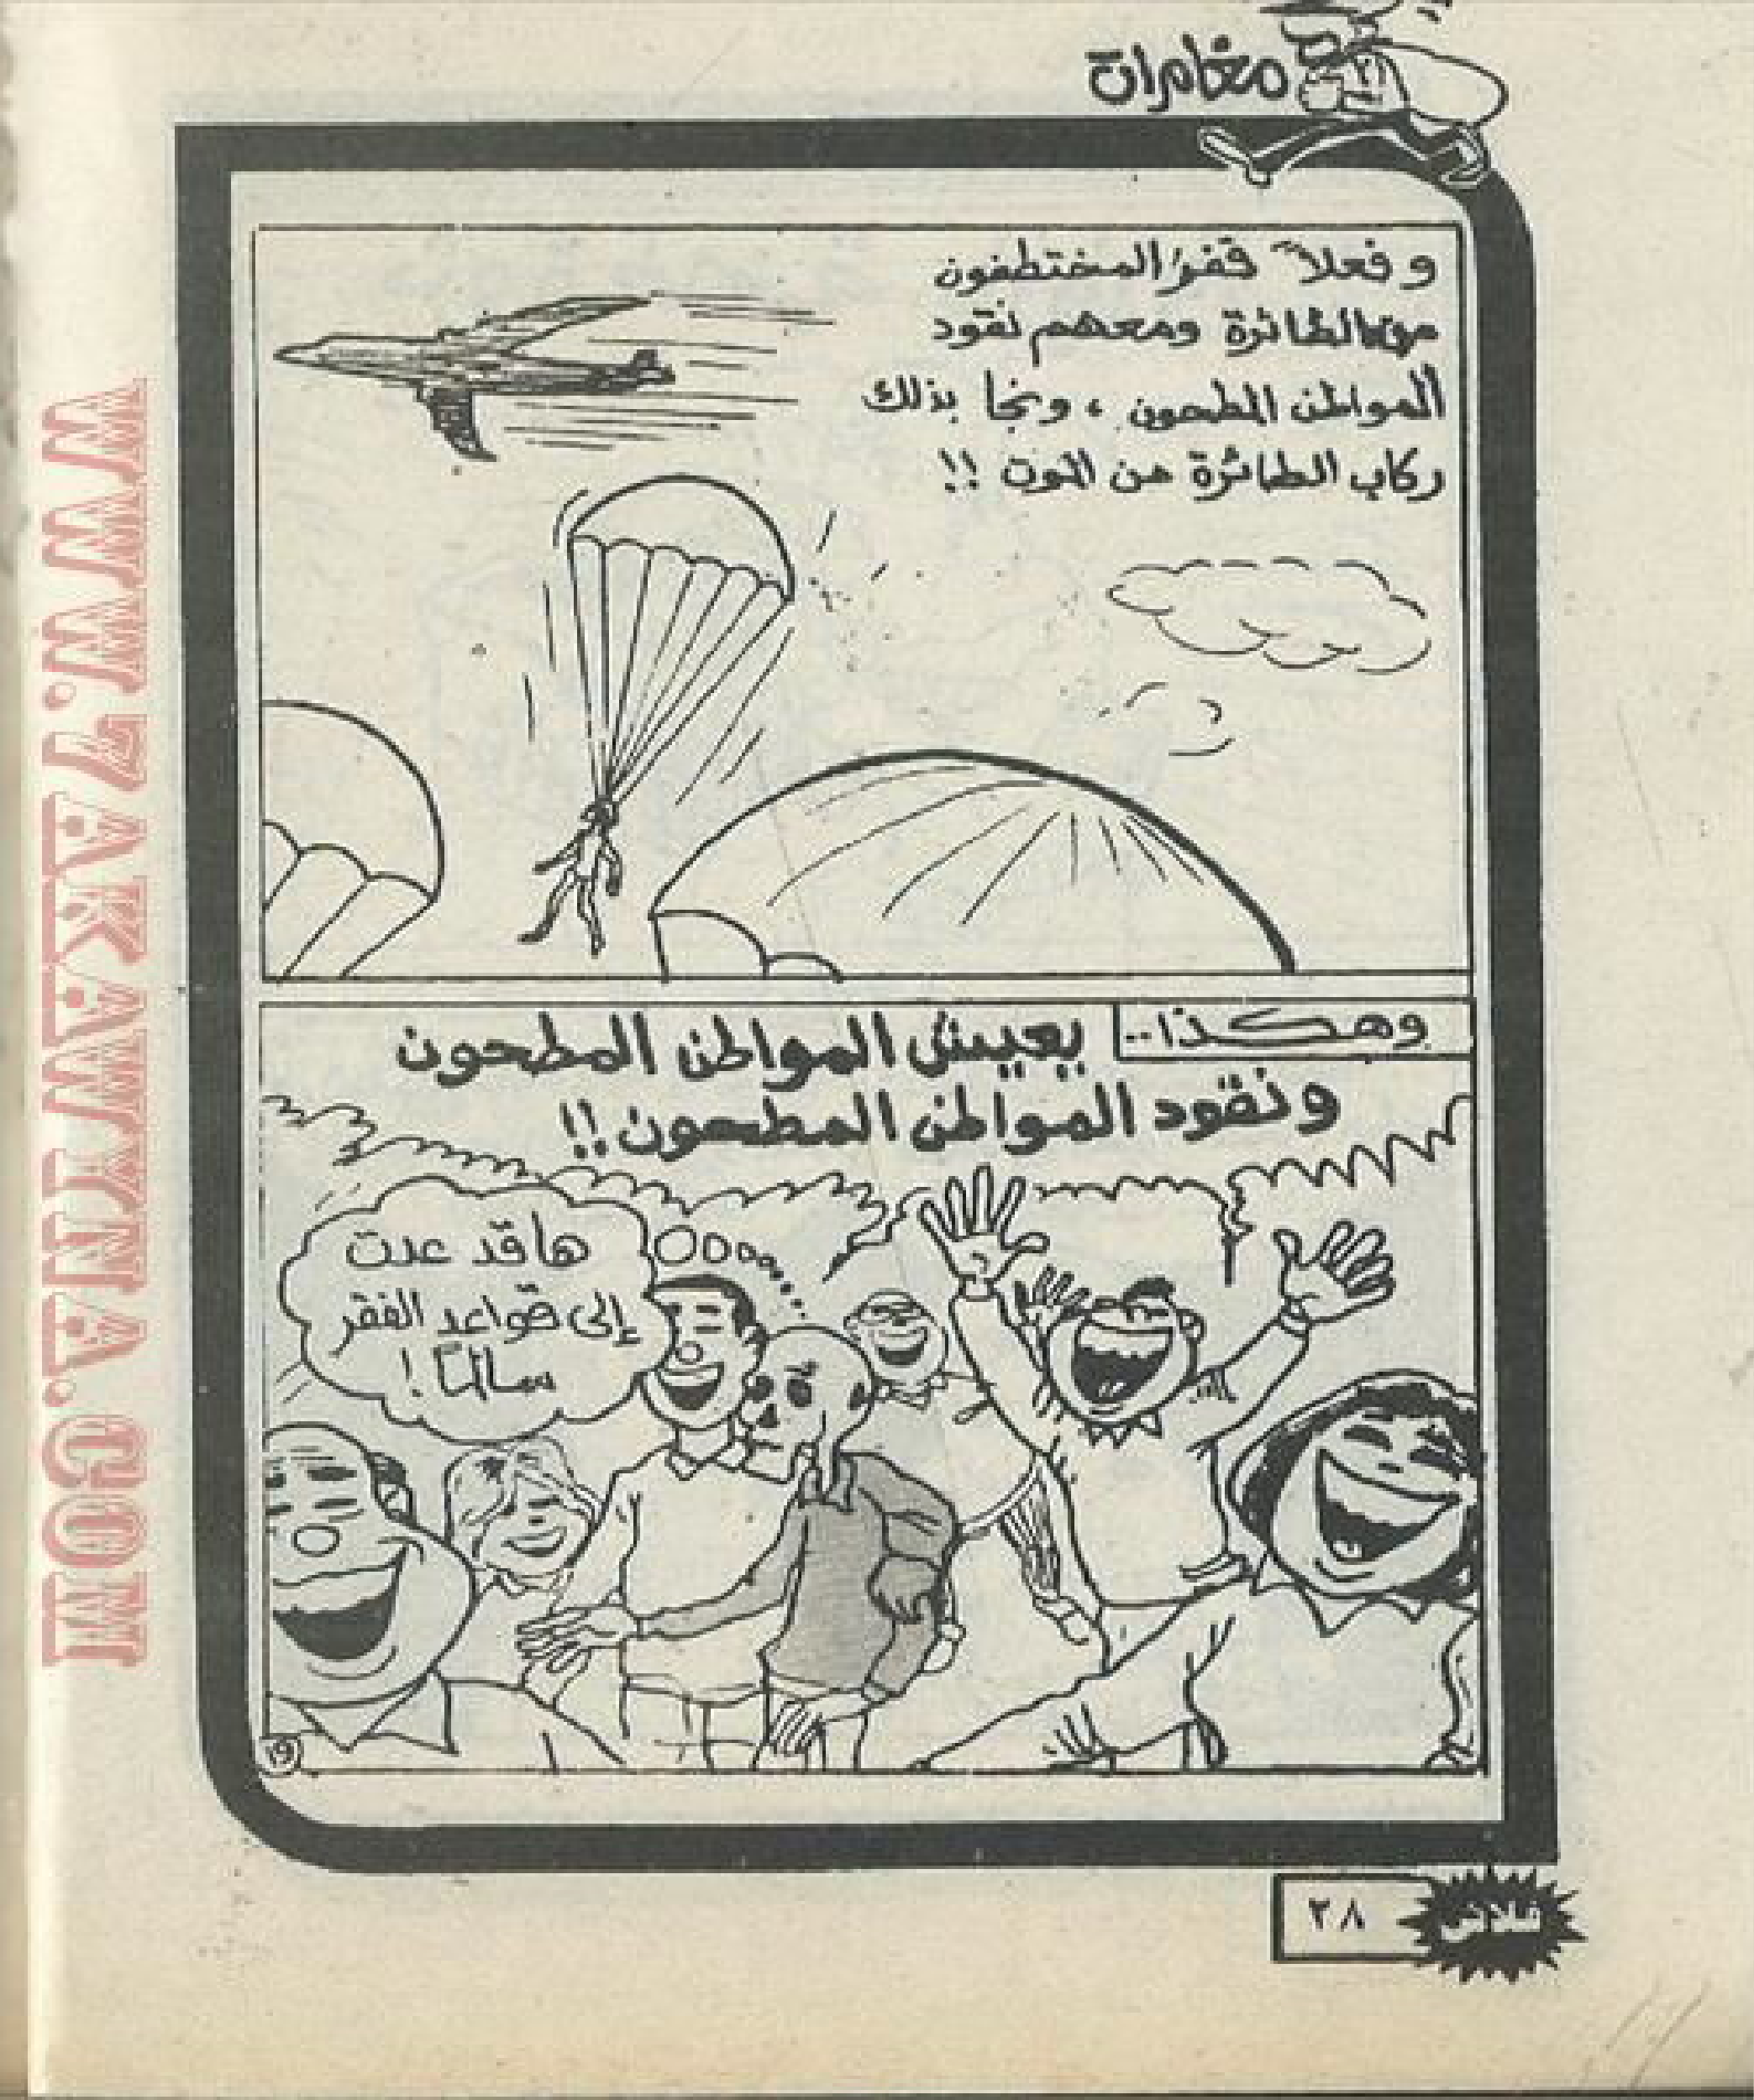 مغامرات
و فعلاً قفز المختطفون
من الطائرة ومعهم نقود
المواطن المطحون ، ونجا بذلك
ركاب الطائرة من الموت !!
وهكذا..
يعيش المواطن المطحون
ونقود المواطن المطحون !!
ها قد عدت
إلى قواعد الفقر
سالماً !
١٩
٢٨
فلاش
WWW.7AKAWITNA.COM